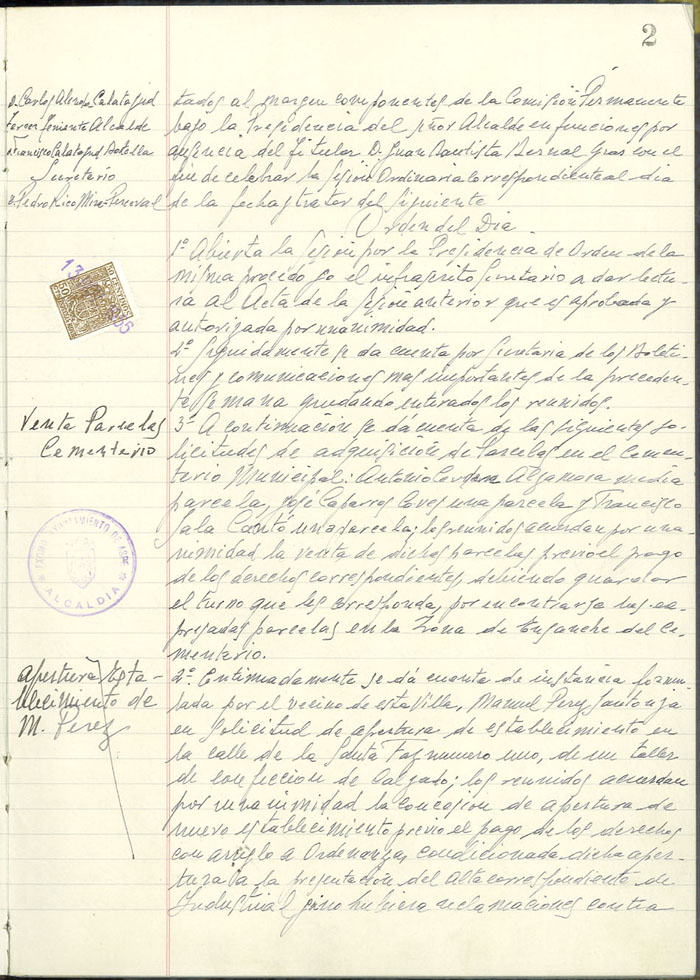 2
D. Carlos Alenda Calatayud
tercer Teniente Alcalde
Francisco Calatayud Botella
Secretario
D. Pedro Rico Mira-Perceval
tados al margen componentes de la Comisión Permanente
bajo la Presidencia del señor Alcalde en funciones por
ausencia del Titular D. Juan Bautista Bernal Gras con el
fin de celebrar la sesión Ordinaria correspondiente al dia
de la fecha y tratar del siguiente
Orden del Dia
1º Abierta la sesión por la Presidencia de Orden de la
misma procedo yo el infrascrito Secretario a dar lectu-
ra al Acta de la sesión anterior que es aprobada y
autorizada por unanimidad.
2º Seguidamente se da cuenta por Secretaria de los Boleti-
nes y comunicaciones mas importantes de la preceden-
te semana quedando enterados los reunidos.
Venta Parcelas
Cementerio
3º A continuación se da cuenta de las siguientes so-
licitudes de adquisición de Parcelas en el Cemen-
terio Municipal: Antonio media
parcela, José Caparros Coves una parcela y Francisco
Sala Cantó una parcela; los reunidos acuerdan por una-
nimidad la venta de dichas parcelas previo el pago
de los derechos correspondientes, debiendo guardar
el turno que les corresponda, por encontrarse las ex-
presadas parcelas en la Zona de Ensanche del Ce-
menterio.
EXCMO. AYUNTAMIENTO DE ASPE
ALCALDIA
apertura Esta-
blecimiento de
M. Perez
2º. Continuadamente se dá cuenta de instancia formu-
lada por el vecino de esta Villa, Manuel Perez Santonja
en solicitud de apertura de establecimiento en
la calle de la Santa Faz numero uno, de un taller
de confeccion de Calzado; los reunidos acuerdan
por unanimidad la concesion de apertura de
nuevo establecimiento previo el pago de los derechos
con arreglo a Ordenanza, condicionada dicha aper-
tura a la presentación del Alta correspondiente de
Industrial y si no hubiera reclamaciones contra